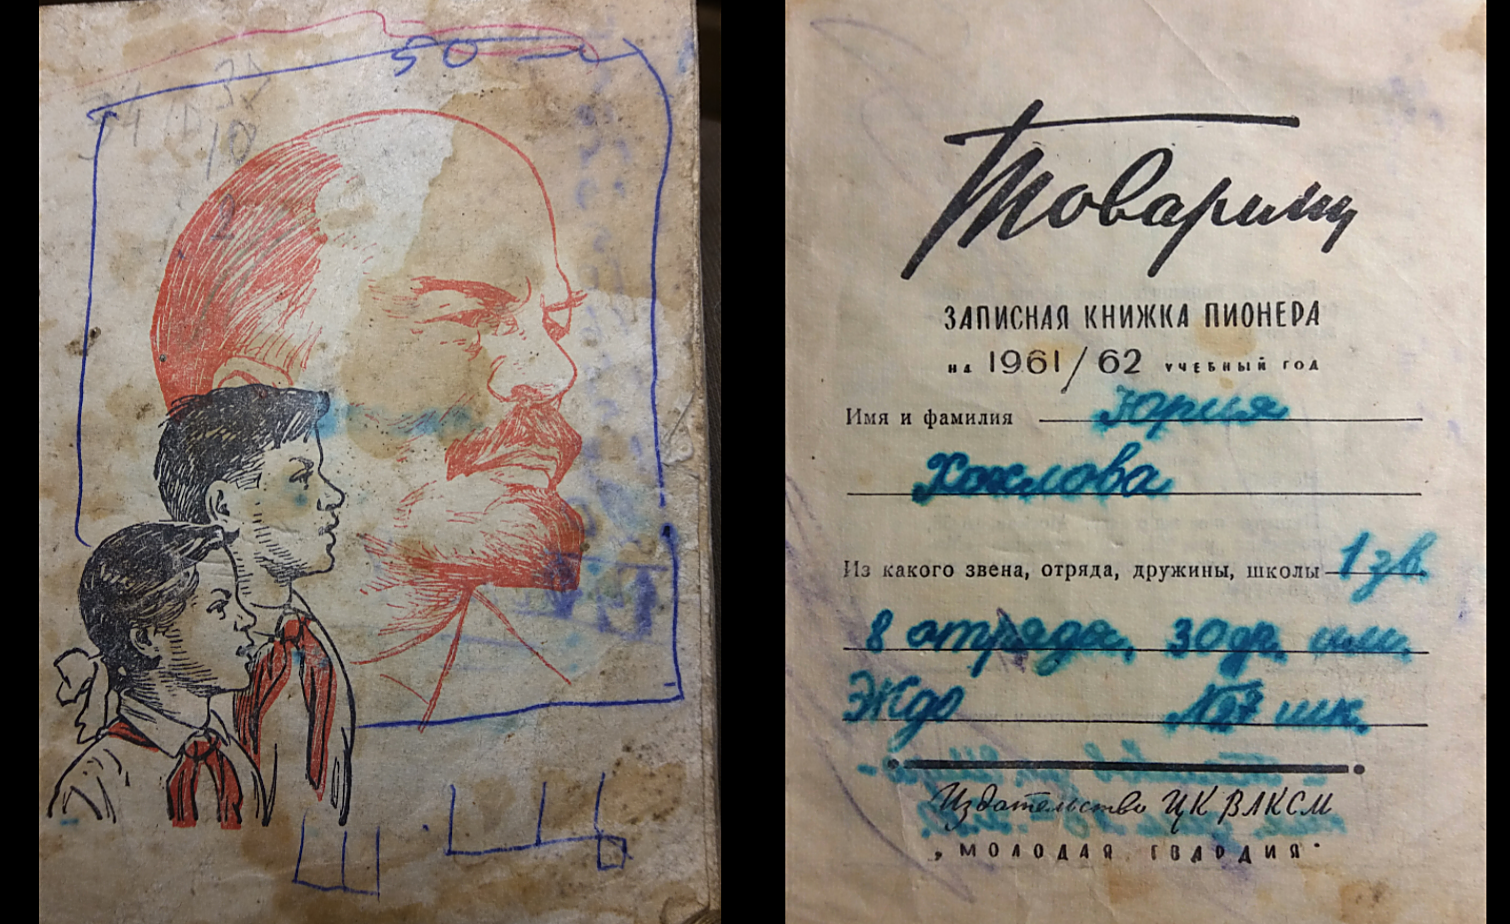 50
32
10
2
Ш Щ
Товарищ
ЗАПИСНАЯ КНИЖКА ПИОНЕРА
НА 1961/62 УЧЕБНЫЙ ГОД
Имя и фамилия Юрия
Хохлова
Из какого звена, отряда, дружины, школы 1 зв.
8 отряда, 30 др. им.
ЖдО шк.
Издательство ЦК ВЛКСМ
„МОЛОДАЯ ГВАРДИЯ"